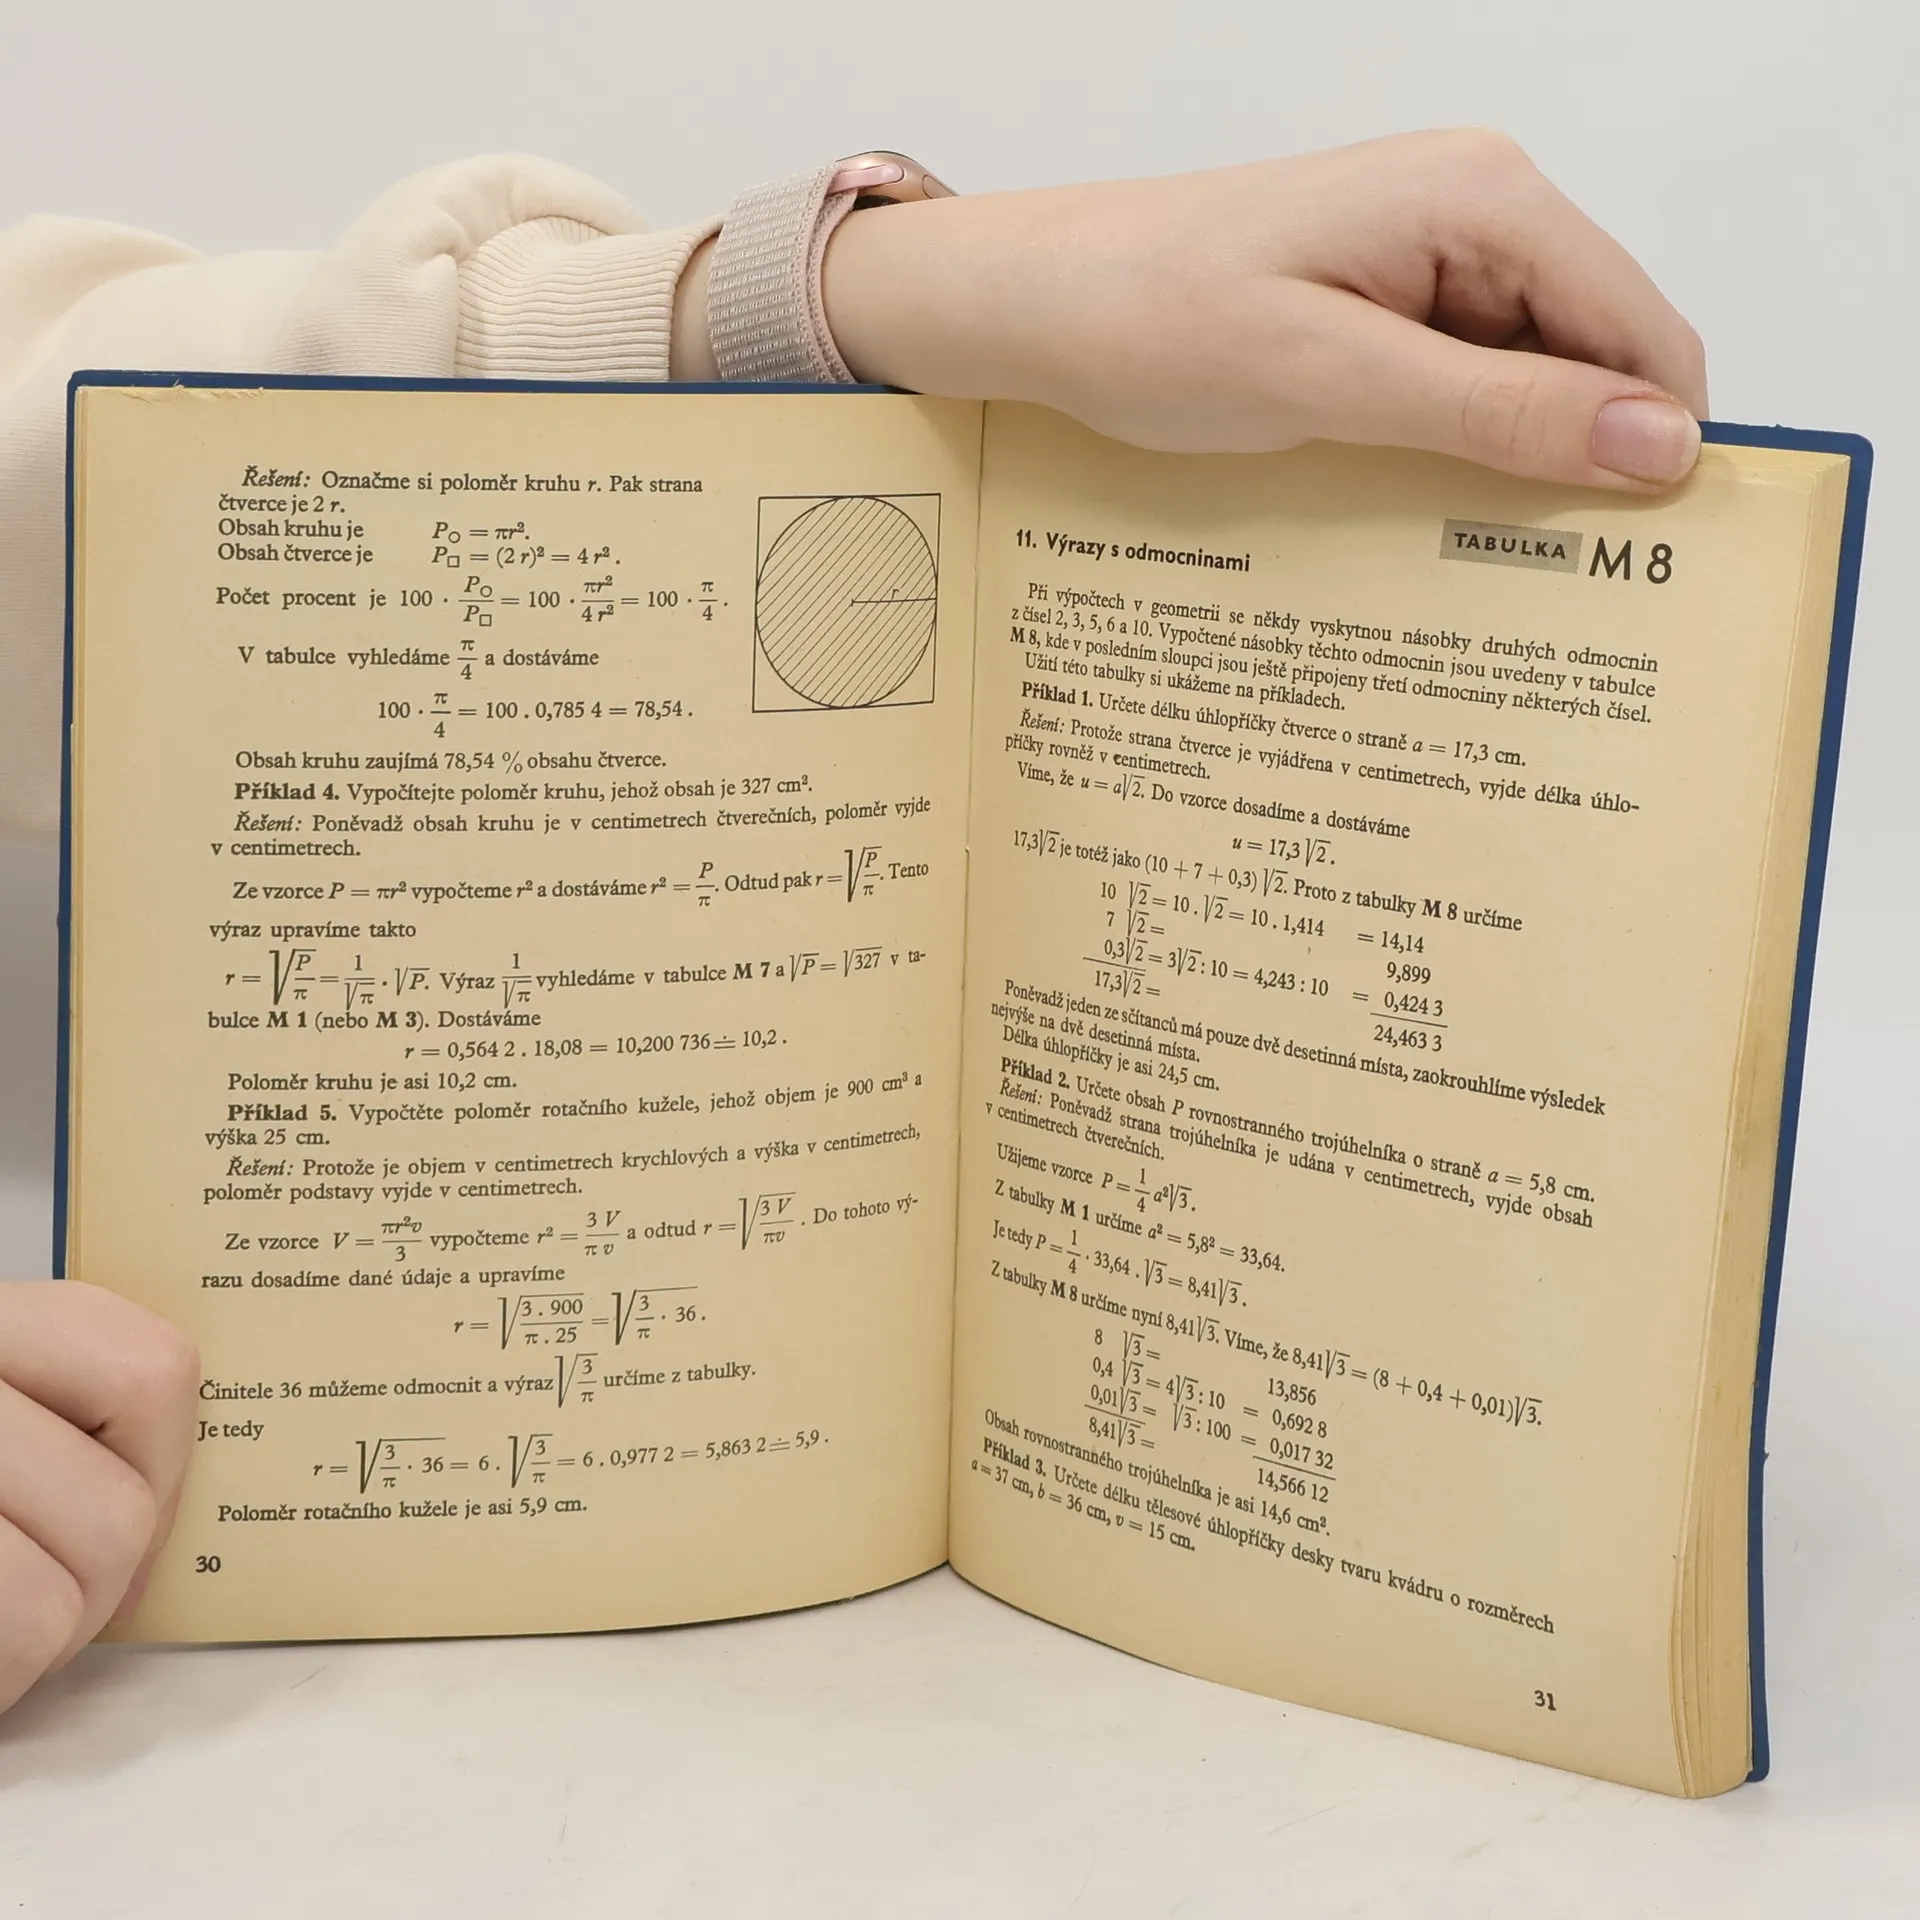 Řešení: Označme si poloměr kruhu r. Pak strana
čtverce je 2 r.
Obsah kruhu je P○ = πr².
Obsah čtverce je P□ = (2 r)² = 4 r² .
Počet procent je 100 · P○/P□ = 100 · πr²/4 r² = 100 · π/4 .
r
V tabulce vyhledáme π/4 a dostáváme
100 · π/4 = 100 . 0,785 4 = 78,54 .
Obsah kruhu zaujímá 78,54 % obsahu čtverce.
Příklad 4. Vypočítejte poloměr kruhu, jehož obsah je 327 cm².
Řešení: Poněvadž obsah kruhu je v centimetrech čtverečních, poloměr vyjde
v centimetrech.
Ze vzorce P = πr² vypočteme r² a dostáváme r² = P/π. Odtud pak r = √(P/π). Tento
výraz upravíme takto
r = √(P/π) = 1/√π · √P. Výraz 1/√π vyhledáme v tabulce M 7 a √P = √327 v ta-
bulce M 1 (nebo M 3). Dostáváme
r = 0,564 2 . 18,08 = 10,200 736 ≐ 10,2 .
Poloměr kruhu je asi 10,2 cm.
Příklad 5. Vypočtěte poloměr rotačního kužele, jehož objem je 900 cm³ a
výška 25 cm.
Řešení: Protože je objem v centimetrech krychlových a výška v centimetrech,
poloměr podstavy vyjde v centimetrech.
Ze vzorce V = πr²v/3 vypočteme r² = 3 V/π v a odtud r = √(3 V/πv) . Do tohoto vý-
razu dosadíme dané údaje a upravíme
r = √(3 . 900/π . 25) = √(3/π · 36 .
Činitele 36 můžeme odmocnit a výraz √(3/π) určíme z tabulky.
Je tedy
r = √(3/π · 36) = 6 . √(3/π) = 6 . 0,977 2 = 5,863 2 ≐ 5,9 .
Poloměr rotačního kužele je asi 5,9 cm.
30
TABULKA M 8
11. Výrazy s odmocninami
Při výpočtech v geometrii se někdy vyskytnou násobky druhých odmocnin
z čísel 2, 3, 5, 6 a 10. Vypočtené násobky těchto odmocnin jsou uvedeny v tabulce
M 8, kde v posledním sloupci jsou ještě připojeny třetí odmocniny některých čísel.
Užití této tabulky si ukážeme na příkladech.
Příklad 1. Určete délku úhlopříčky čtverce o straně a = 17,3 cm.
Řešení: Protože strana čtverce je vyjádřena v centimetrech, vyjde délka úhlo-
příčky rovněž v centimetrech.
Víme, že u = a√2. Do vzorce dosadíme a dostáváme
u = 17,3 √2 .
17,3√2 je totéž jako (10 + 7 + 0,3) √2. Proto z tabulky M 8 určíme
10 √2 = 10 . √2 = 10 . 1,414 = 14,14
7 √2 = 9,899
0,3√2 = 3√2 : 10 = 4,243 : 10 = 0,424 3
17,3√2 = 24,463 3
Poněvadž jeden ze sčítanců má pouze dvě desetinná místa, zaokrouhlíme výsledek
nejvýše na dvě desetinná místa.
Délka úhlopříčky je asi 24,5 cm.
Příklad 2. Určete obsah P rovnostranného trojúhelníka o straně a = 5,8 cm.
Řešení: Poněvadž strana trojúhelníka je udána v centimetrech, vyjde obsah
v centimetrech čtverečních.
Užijeme vzorce P = 1/4 a²√3 .
Z tabulky M 1 určíme a² = 5,8² = 33,64.
Je tedy P = 1/4 · 33,64 . √3 = 8,41√3 .
Z tabulky M 8 určíme nyní 8,41√3. Víme, že 8,41√3 = (8 + 0,4 + 0,01)√3.
8 √3 = 13,856
0,4 √3 = 4√3 : 10 = 0,692 8
0,01√3 = √3 : 100 = 0,017 32
8,41√3 = 14,566 12
Obsah rovnostranného trojúhelníka je asi 14,6 cm².
Příklad 3. Určete délku tělesové úhlopříčky desky tvaru kvádru o rozměrech
a = 37 cm, b = 36 cm, v = 15 cm.
31